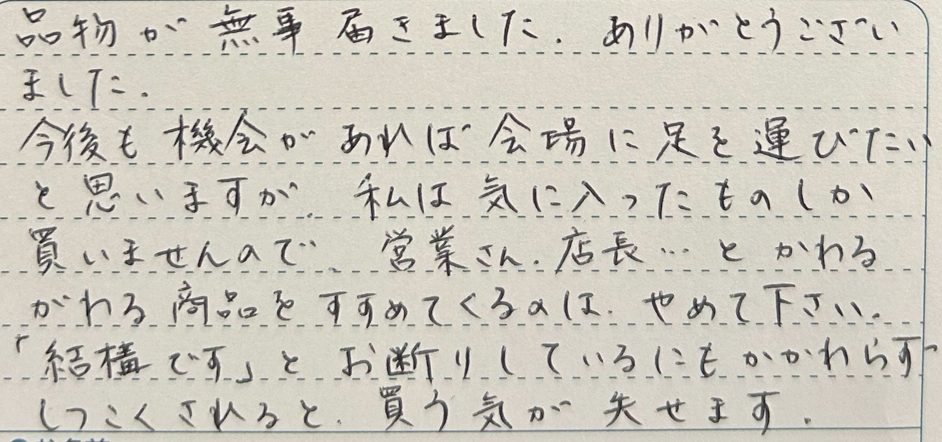 品物が無事届きました。ありがとうござい
ました。
今後も機会があれば会場に足を運びたい
と思いますが、私は気に入ったものしか
買いませんので、営業さん、店長…とかわる
がわる商品をすすめてくるのは、やめて下さい。
「結構です」とお断りしているにもかかわらず
しつこくされると、買う気が失せます。